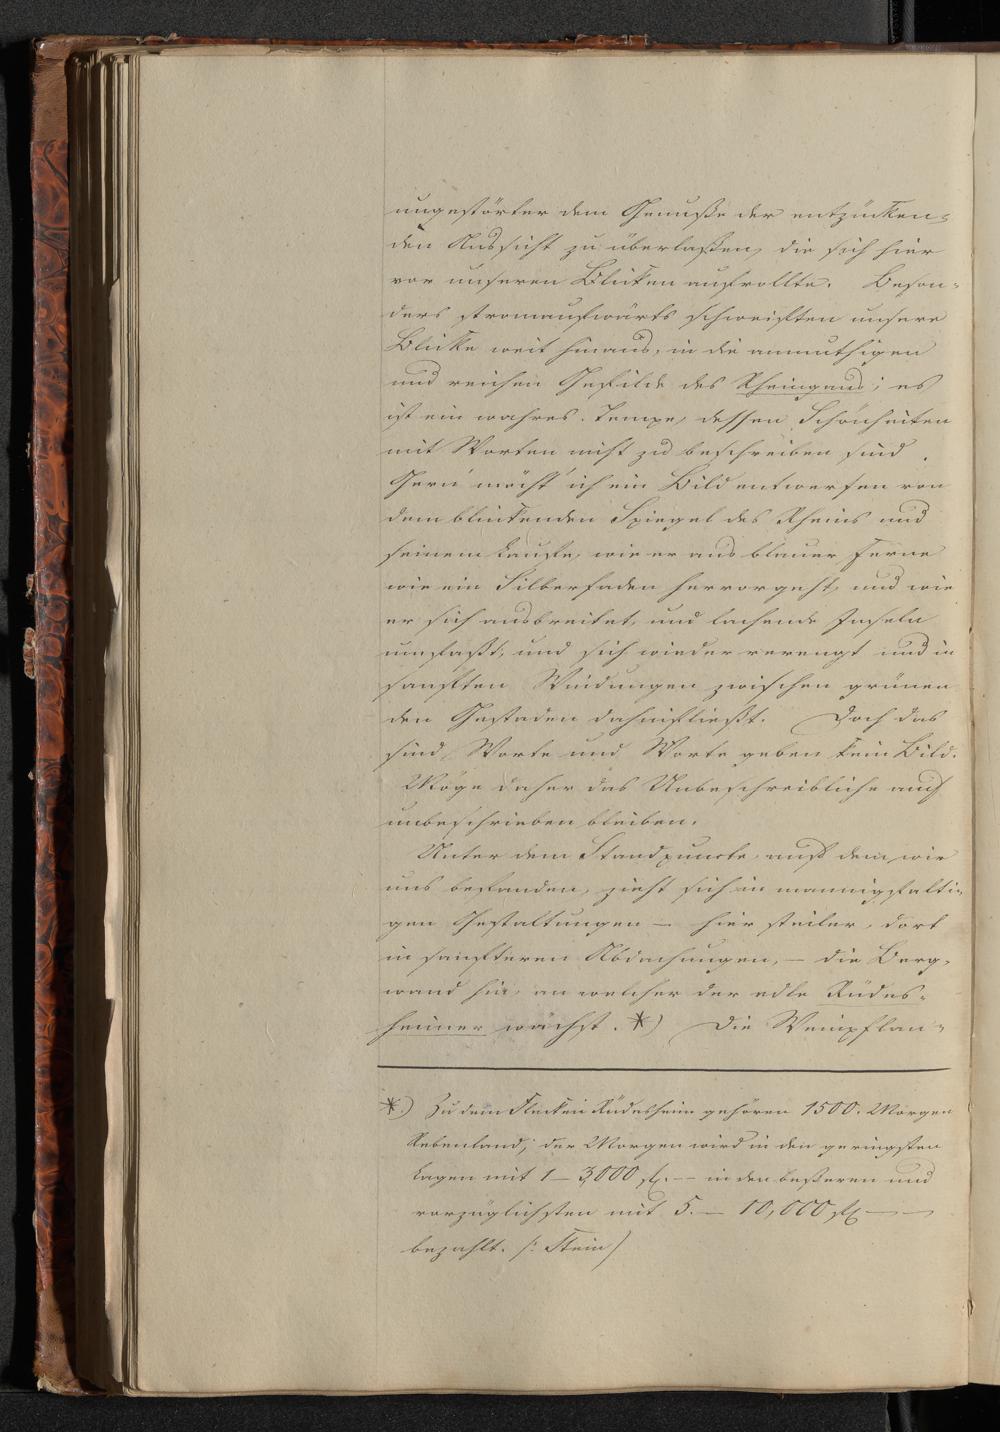 ungestörter dem Genuße der entzücken-
den Aussicht zu überlaßen, die sich hier
vor unseren Blicken aufrollte. Beson-
ders stromaufwärts schweiften unsere
Blicke weit hinaus, in die anmuthigen
und reichen Gefilde des Rheingaus; es
ist ein wahres Tempe, dessen Schönheiten
mit Worten nicht zu beschreiben sind.
Gern möcht' ich ein Bild entwerfen von
dem blinkenden Spiegel des Rheins und
seinem Laufe, wie er aus blauer Ferne
wie ein Silberfaden hervorgeht, und wie
er sich ausbreitet, und lachende Inseln
umfaßt, und sich wieder verengt und in
sanften Windungen zwischen grünen
den Gestaden dahinfließt. Doch das
sind Worte und Worte geben kein Bild.
Möge daher das Unbeschreibliche auch
unbeschrieben bleiben.
Unter dem Standpuncte, auf dem wir
uns befanden, zieht sich in mannigfalti-
gen Gestaltungen — hier steiler, dort
in sanfteren Abdachungen, — die Berg-
wand hin, an welcher der edle Rüdes-
heimer wächst. *) Die Weinpflan-
*) Zu dem Flecken Rüdesheim gehören 1500. Morgen
Rebenland; der Morgen wird in den geringsten
Lagen mit 1–3,000 fl. — in den beßeren und
vorzüglichsten mit 5. — 10,000 fl — —
bezahlt. /: Stein /